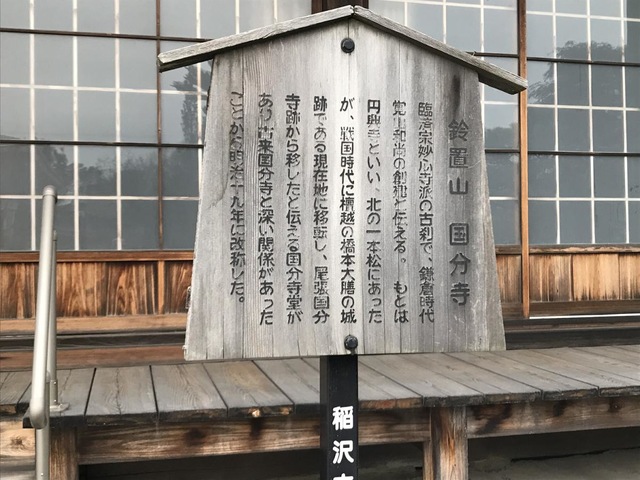 鈴置山 国分寺
臨済宗妙心寺派の古刹で、鎌倉時代
覚山和尚の創建と伝える。もとは
円興寺といい、北の一本松にあった
が、戦国時代に檀越の橋本大膳の城
跡である現在地に移転し、尾張国分
寺跡から移したと伝える国分寺堂が
あり古来国分寺と深い関係があった
ことから明治十九年に改称した。
稲沢